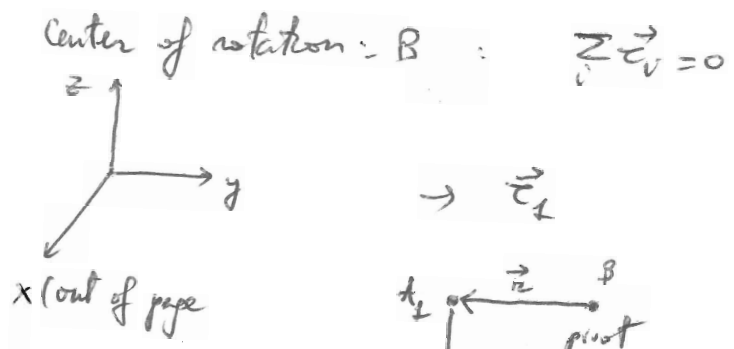 Center of rotation : B : Σ_i τ⃗_i = 0
z
y
→ τ⃗_1
x (out of page
A_1 r⃗ B
pivot